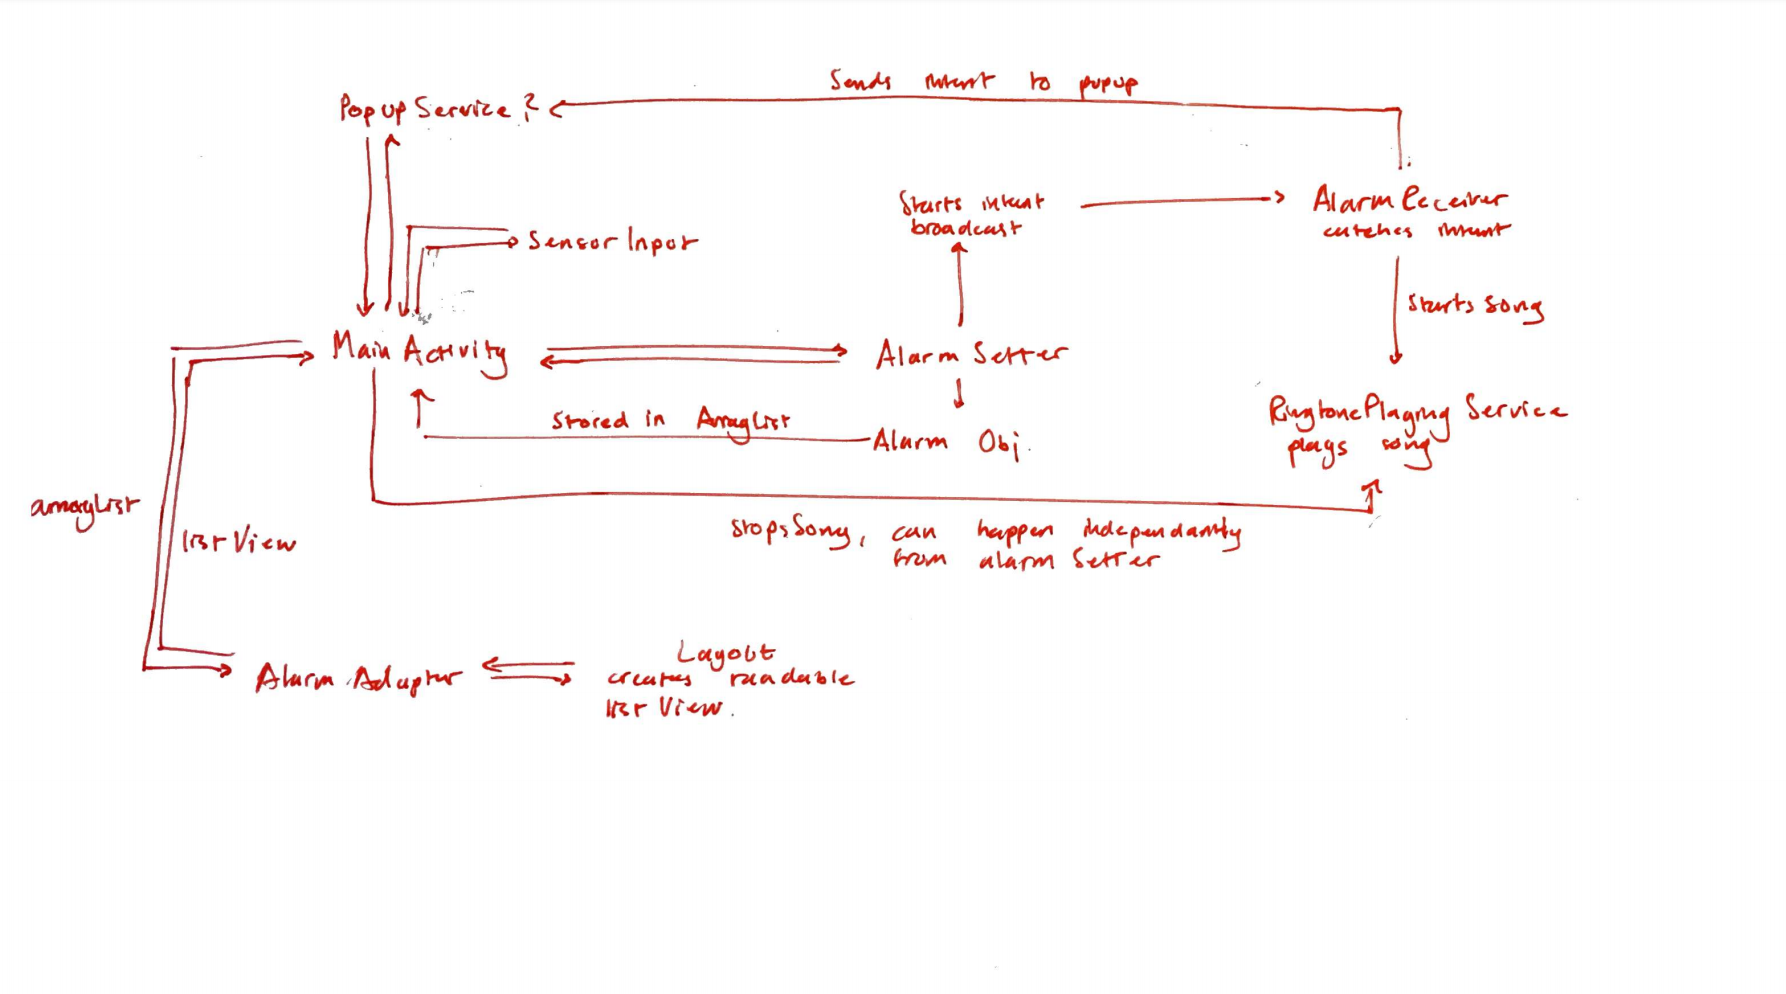 Sends intent to popup
PopUp Service ?
Starts intent
broadcast
Alarm Receiver
catches intent
Sensor Input
Starts song
Main Activity
Alarm Setter
RingtonePlaying Service
plays song
Stored in ArrayList
Alarm Obj.
arrayList
listView
stopsSong, can happen independantly
from alarm Setter
Alarm Adapter
Layout
creates readable
listView.